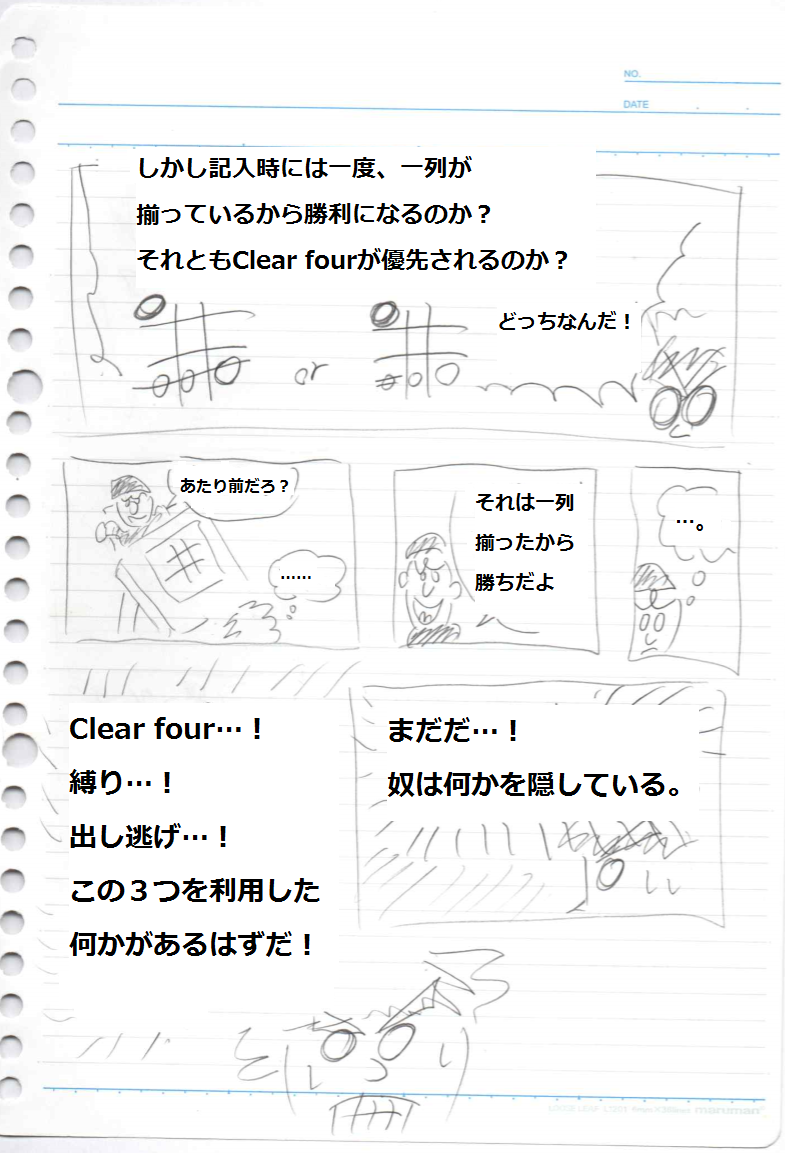 NO.
DATE
しかし記入時には一度、一列が
揃っているから勝利になるのか？
それともClear fourが優先されるのか？
どっちなんだ！
or
あたり前だろ？
……
それは一列
揃ったから
勝ちだよ
…。
まだだ…！
奴は何かを隠している。
Clear four…！
縛り…！
出し逃げ…！
この３つを利用した
何かがあるはずだ！
maruman